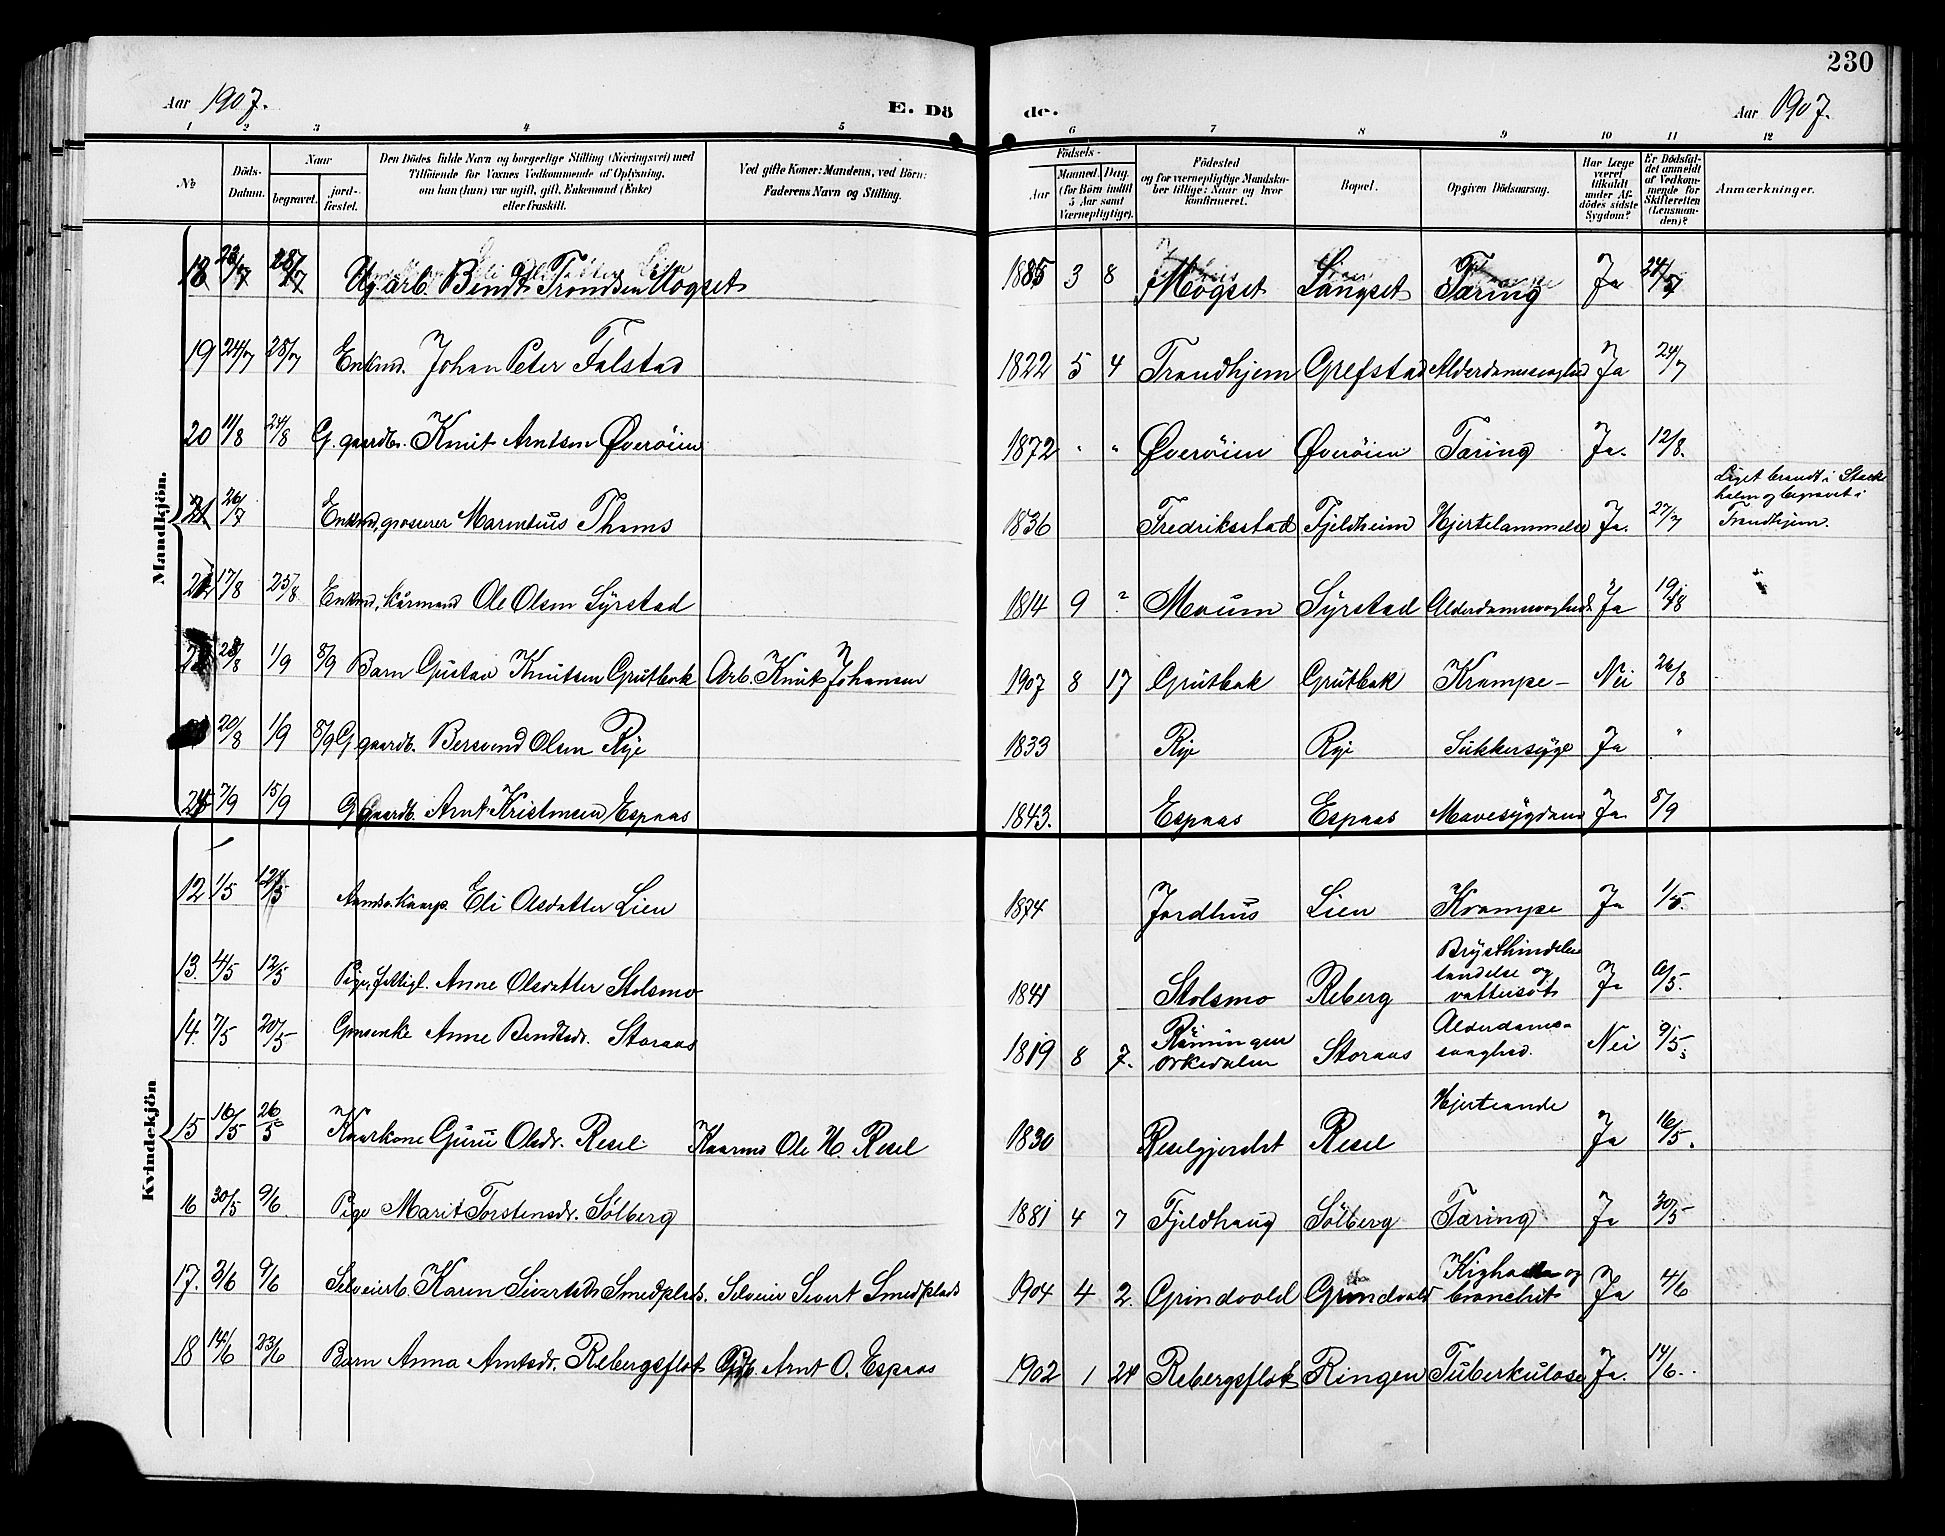 230
Aar 1907. E. Dö de. Aar 1907.
1 2 3 4 5 6 7 8 9 10 11 12
№
Döds-Datum.
Naar
begravet.
jord-fæstet.
Den Dödes fulde Navn og borgerlige Stilling (Næringsvei) med
Tilföiende for Voxnes Vedkommende af Oplysning,
om han (hun) var ugift, gift, Enkemand (Enke)
eller fraskilt.
Ved gifte Koner: Mandens, ved Börn:
Faderens Navn og Stilling.
Födsels-
Aar
Maaned. Dag.
(for Börn indtil
5 Aar samt
Værnepligtige).
Födested
og for værnepligtige Mandskaber tillige: Naar og hvor
konfirmeret.
Bopæl.
Opgiven Dödsaarsag.
Har Læge
været
tilkaldt
under Afdödes sidste
Sygdom?
Er Dödsfaldet anmeldt
af Vedkommende for
Skifteretten
(Lensmanden)?
Anmærkninger.
Mandkjön.
18 23/7 28/7 Ug. arb. Bendt Trondsen Mogset 1885 3 8 Mogset Langset Tæring Ja 24/7
19 24/7 28/7 Enkmd. Johan Peter Falstad 1822 5 4 Trondhjem Grefstad Alderdomssvaghed Ja 24/7
20 11/8 24/8 G. gaardbr. Knut Arntsen Øverøien 1872 " " Øverøien Øverøien Tæring Ja. 12/8.
21 26/7 Enkmd, grosserer Marentius Thams 1836 Fredriksstad Fjeldheim Hjertelammelse Ja. 27/7 Liget brændt i Stockholm og begravet i Trondhjem.
22 17/8 25/8 Enkmd, kårmand Ole Olsen Syrstad 1814 9 ? Moum Syrstad Alderdomssvaghed Ja 19/8
28/8 1/9 8/9 Barn Gustav Knutsen Grutbak Arb. Knut Johansen 1907 8 17 Grutbak Grutbak Krampe Nei 26/8
20/8 1/9 8/9 G. gaardb. Bersvend Olsen Rye 1833 Rye Rye Sukkersyge Ja "
7/9 15/9 G. gaardb. Arnt Kristensen Espaas 1843. Espaas Espaas Mavesygdom Ja 8/9
Kvindekjön
12 1/5 12/5 Eli Olsdatter Lien 1874 Jordhus Lien Krampe Ja 1/5.
13. 4/5 12/5 Pige, Anne Olsdatter Stolsmo 1841 Stolsmo Reberg Brysthindebetændelse og vattersot Ja 6/5.
14. 7/5 20/5 Anne Bendtsdr. Storaas 1819 8 7. Orkedalen Storaas Alderdomssvaghed. Nei 9/5.
15 16/5 26/5 Kaarkone Guru Olsdr. Resel Kaarmd Ole H. Resel 1830 Reselgjerdet Resel Hjerteonde Ja 16/5.
16 30/5 9/6 Pige Marit Torstensdr. Solberg 1881 4 7 Fjeldhaug Solberg Tæring Ja 30/5
17. 3/6 9/6 Selveierb. Karen Sivertsdr Smedplads. Selveier Sivert Smedplads 1904 4 2. Grindvold Grindvold Kighoste og bronchit Ja 4/6
18 14/6 23/6 Barn Anna Arntsdr. Rebergsflot Gdb. Arnt O. Espaas 1902 1 24 Rebergsflot Ringen Tuberkulose Ja. 14/6.